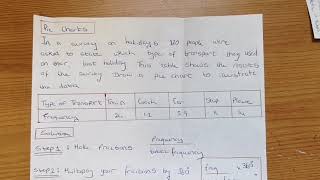 Pie Charts
In a survey on holidays 120 people were
asked to state which type of transport they used
on their last holiday This table shows the results
of the survey Draw a pie chart to illustrate
the data
Type of Transport Train Coach Car Ship Plane
Frequency
Solution
Frequency
Step 1: Make Fractions total frequency
Step 2: Multiply your fractions by 360